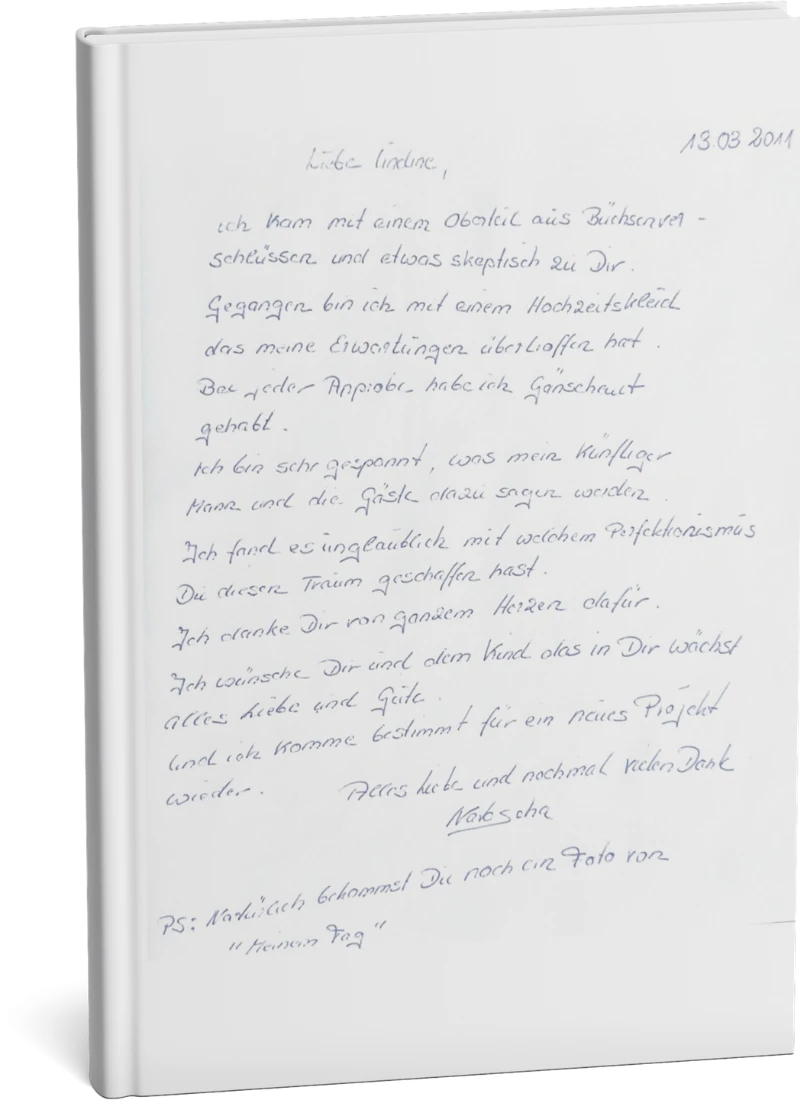 13.03 2011
Liebe Undine,
ich kam mit einem Oberteil aus Büchsenver-
schlüssen und etwas skeptisch zu Dir.
Gegangen bin ich mit einem Hochzeitskleid
das meine Erwartungen übertroffen hat.
Bei jeder Anprobe habe ich Gänsehaut
gehabt.
Ich bin sehr gespannt, was mein künftiger
Mann und die Gäste dazu sagen werden.
Ich fand es unglaublich mit welchem Perfektionismus
Du diesen Traum geschaffen hast.
Ich danke Dir von ganzem Herzen dafür.
Ich wünsche Dir und dem Kind das in Dir wächst
alles Liebe und Gute.
Und ich komme bestimmt für ein neues Projekt
wieder.
Alles Liebe und nochmal vielen Dank
Natascha
PS: Natürlich bekommst Du noch ein Foto von
"Meinem Tag"